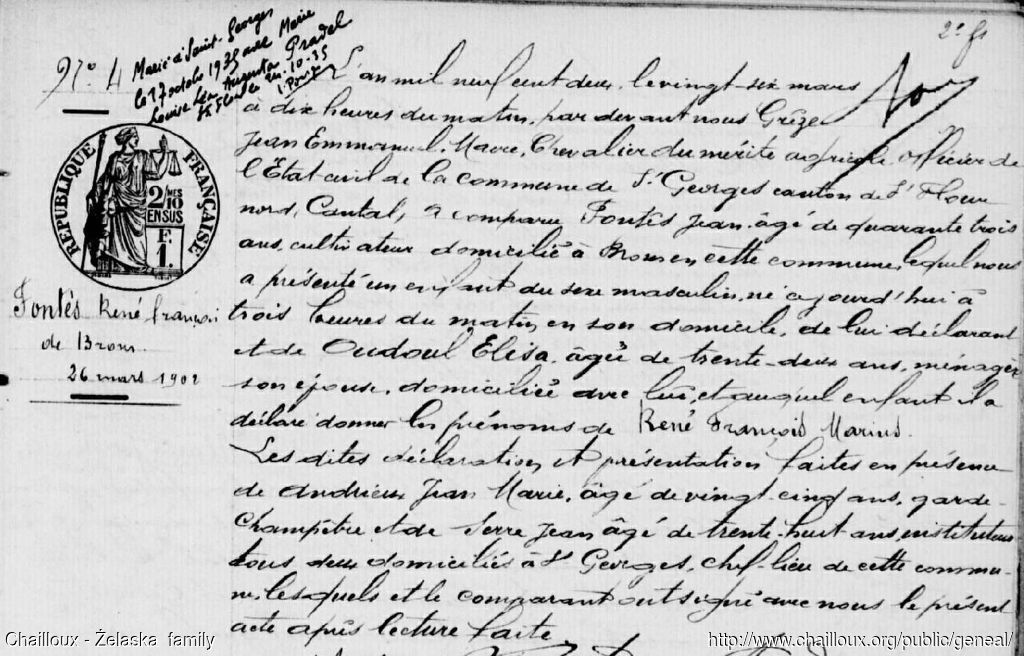 2e ft
N° 4
Marié à Saint-Georges
le 17 octobre 1935 avec Marie
Louise Léa Augusta Pradel
St Georges le 20-10-35
L'an mil neuf cent deux, le vingt-six mars
à dix heures du matin, par devant nous Grèze
Jean Emmanuel, Maire, Chevalier du mérite agricole officier de
l'Etat civil de la commune de St Georges canton de St Flour
nord, Cantal, a comparu Fontès Jean, âgé de quarante trois
ans, cultivateur domicilié à Brons en cette commune, lequel nous
a présenté un enfant du sexe masculin, né aujourd'hui à
trois heures du matin en son domicile, de lui déclarant
et de Oudoul Elisa, âgée de trente-deux ans, ménagère
son épouse, domiciliée avec lui, et auquel enfant il a
déclaré donner les prénoms de René François Marius.
Les dites déclaration et présentation faites en présence
de Andrieux Jean Marie, âgé de vingt-cinq ans, garde-
Champêtre et de Serre Jean âgé de trente-huit ans, instituteur
tous deux domiciliés à St Georges, chef-lieu de cette commu-
ne, lesquels et le comparant ont signé avec nous le présent
acte après lecture faite
RÉPUBLIQUE FRANÇAISE
2 MES
10
EN SUS
F.
1.
Fontès René françois
de Brons
26 mars 1902
Chailloux - Želaska family
http://www.chailloux.org/public/geneal/